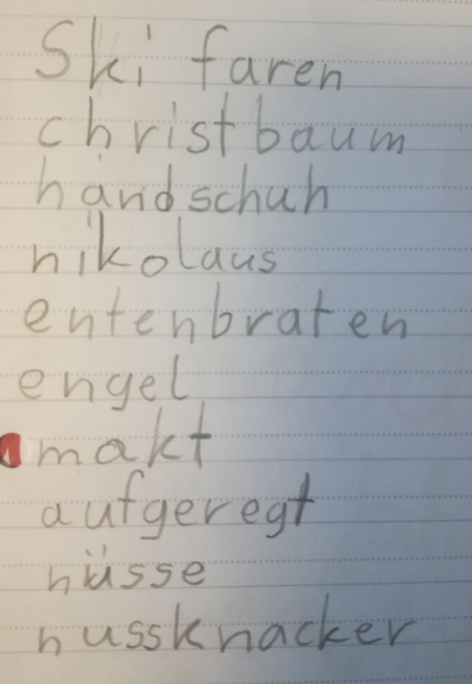 Ski faren
christbaum
handschuh
nikolaus
entenbraten
engel
makt
aufgeregt
nüsse
nussknacker